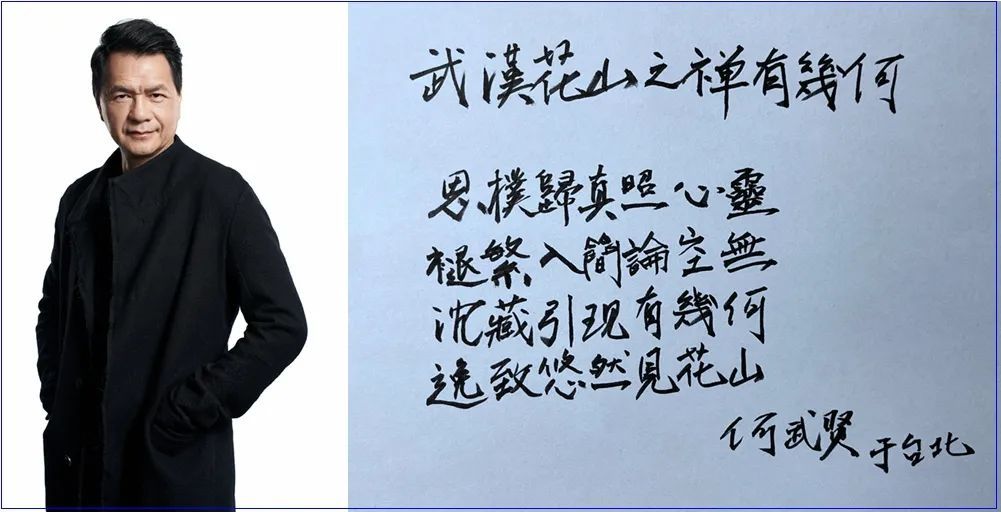 武漢花山之禅有幾何
思樸歸真照心靈
褪繁入簡論空無
沈藏引现有幾何
逸致悠然見花山
何武賢于台北